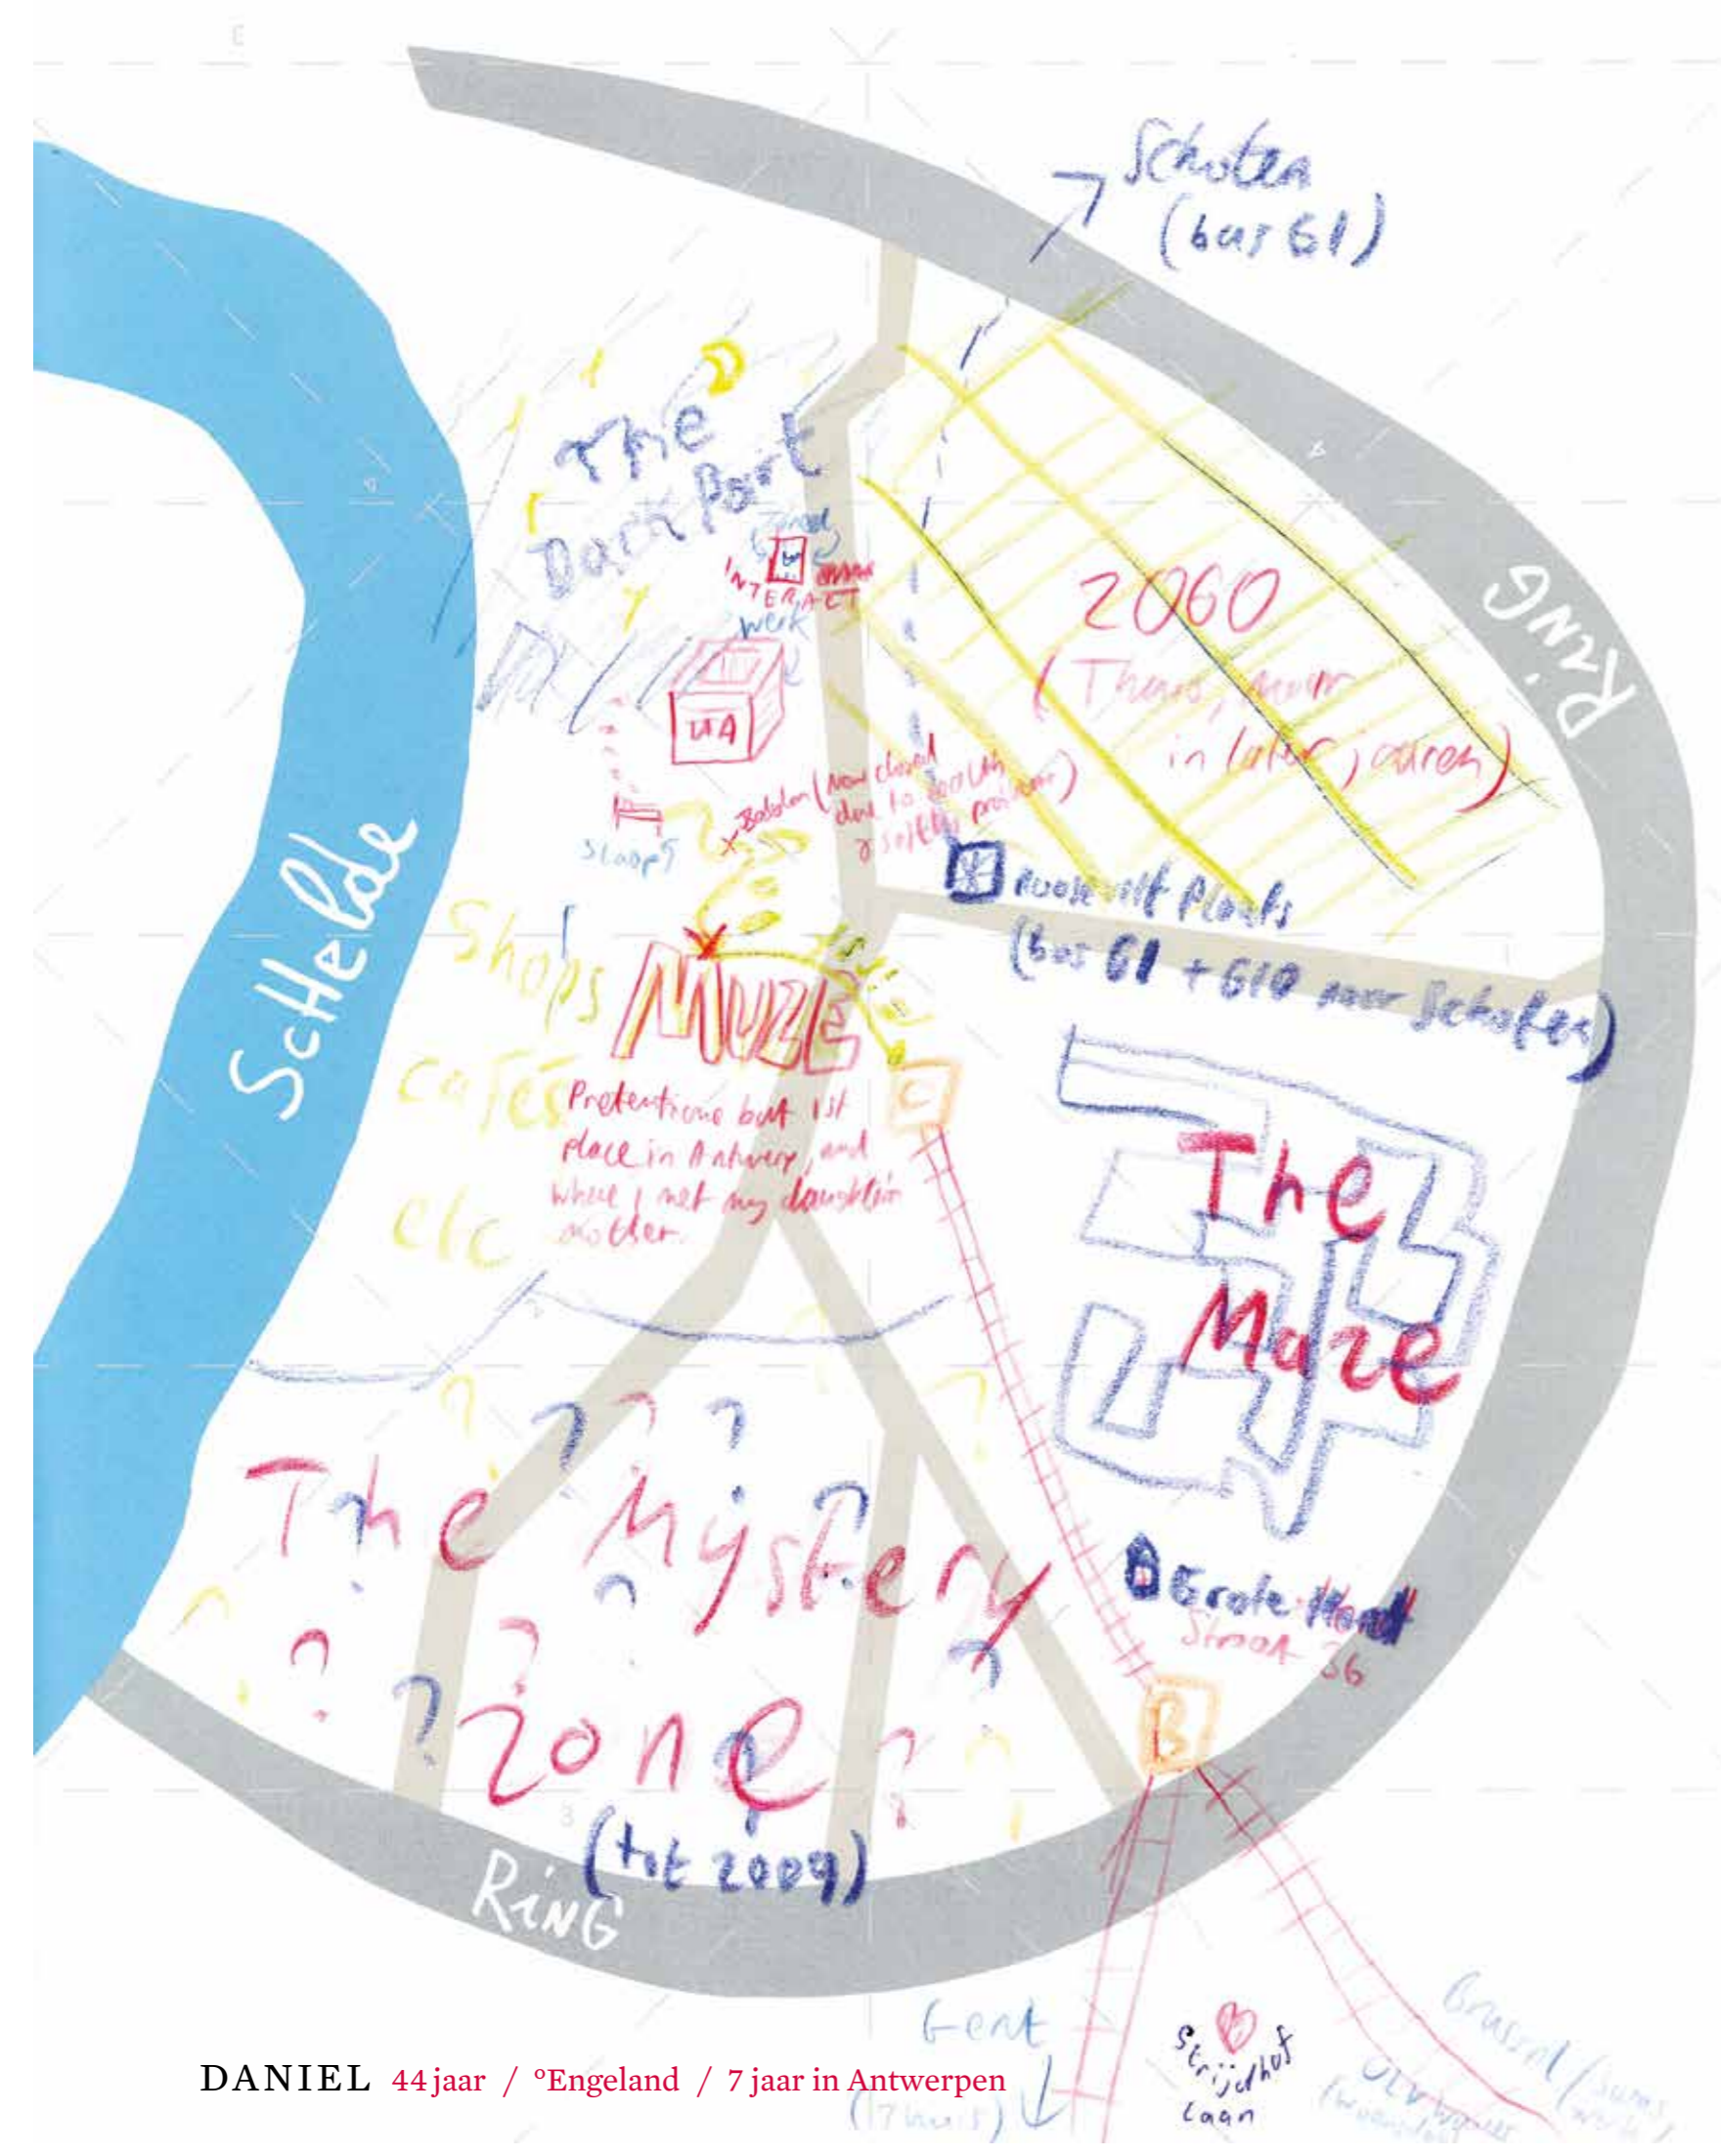 Schoten
(bus 61)
The
Dark Part
INTERACT
werk
UA
2060
(Thuis, maar
in later jaren)
RiNG
Babylon (Now closed
due to health
& safety problems)
slaap
Roosevelt Plaats
(bus 61 + 610 naar Schoten)
ScHelde
Shops
cafés
etc
MUZE
Pretentious but 1st
place in Antwerp, and
where I met my daughter's
mother.
C
The
Maze
The Mystery
Zone
(tot 2009)
Grote Hond
Straat 36
B
RiNG
Gent
(Thuis)
Strijdhof
laan
Brussel
DANIEL 44 jaar / °Engeland / 7 jaar in Antwerpen